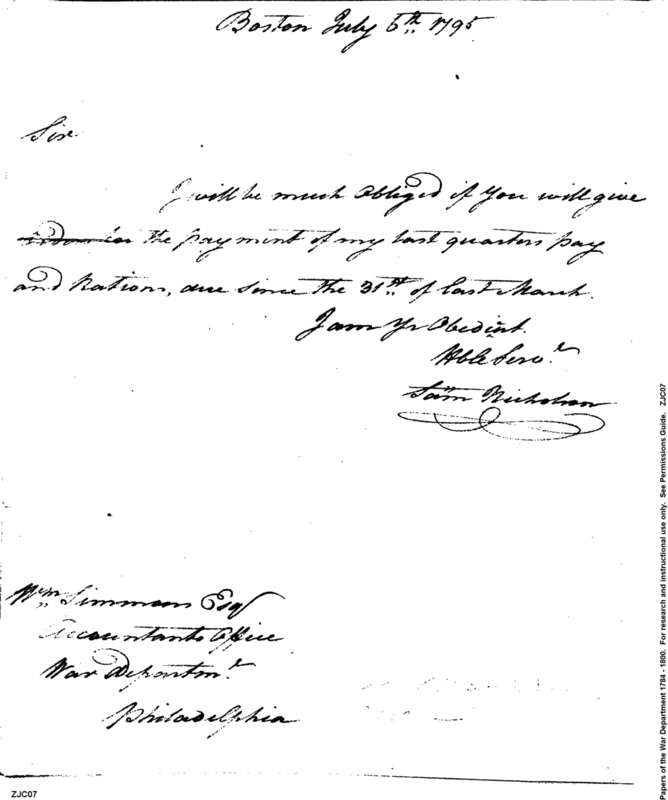 Boston July 6th 1795
Sir
I will be much Obliged if You will give
the payment of my last quarters pay
and Rations, due since the 31st. of last March.
I am Yr Obedint.
Hble Servt.
Saml Nicholson
Wm. Simmons Esqr
Accountants Office
War Departmt.
Philadelphia
ZJC07
Papers of the War Department 1784 - 1800. For research and instructional use only. See Permissions Guide. ZJC07